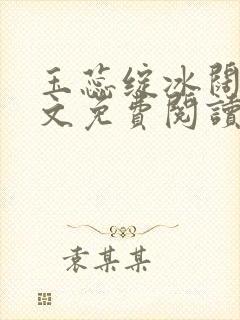 玉蕊绽冰閼
文免費閱讀
袁某某